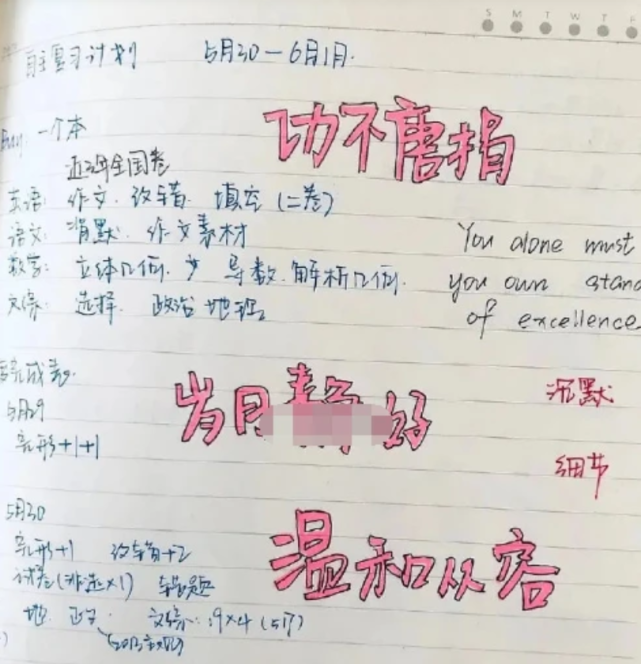 S M T W T F
自主复习计划 5月30—6月1月.
功不唐捐
一个本
近3年全国卷
英语: 作文. 改错. 填空(二卷)
语文: 背默. 作文素材
You alone must
数学: 立体几何. 导数. 解析几何.
you own stand
文综: 选择. 政治 地理
of excellence
完成表:
岁月 好
沉默
5月29
完形+1+1
细节
5月30
完形+1 改错+2
温和从容
试卷(非选×1) 错题
地. 政 文综: 9×4